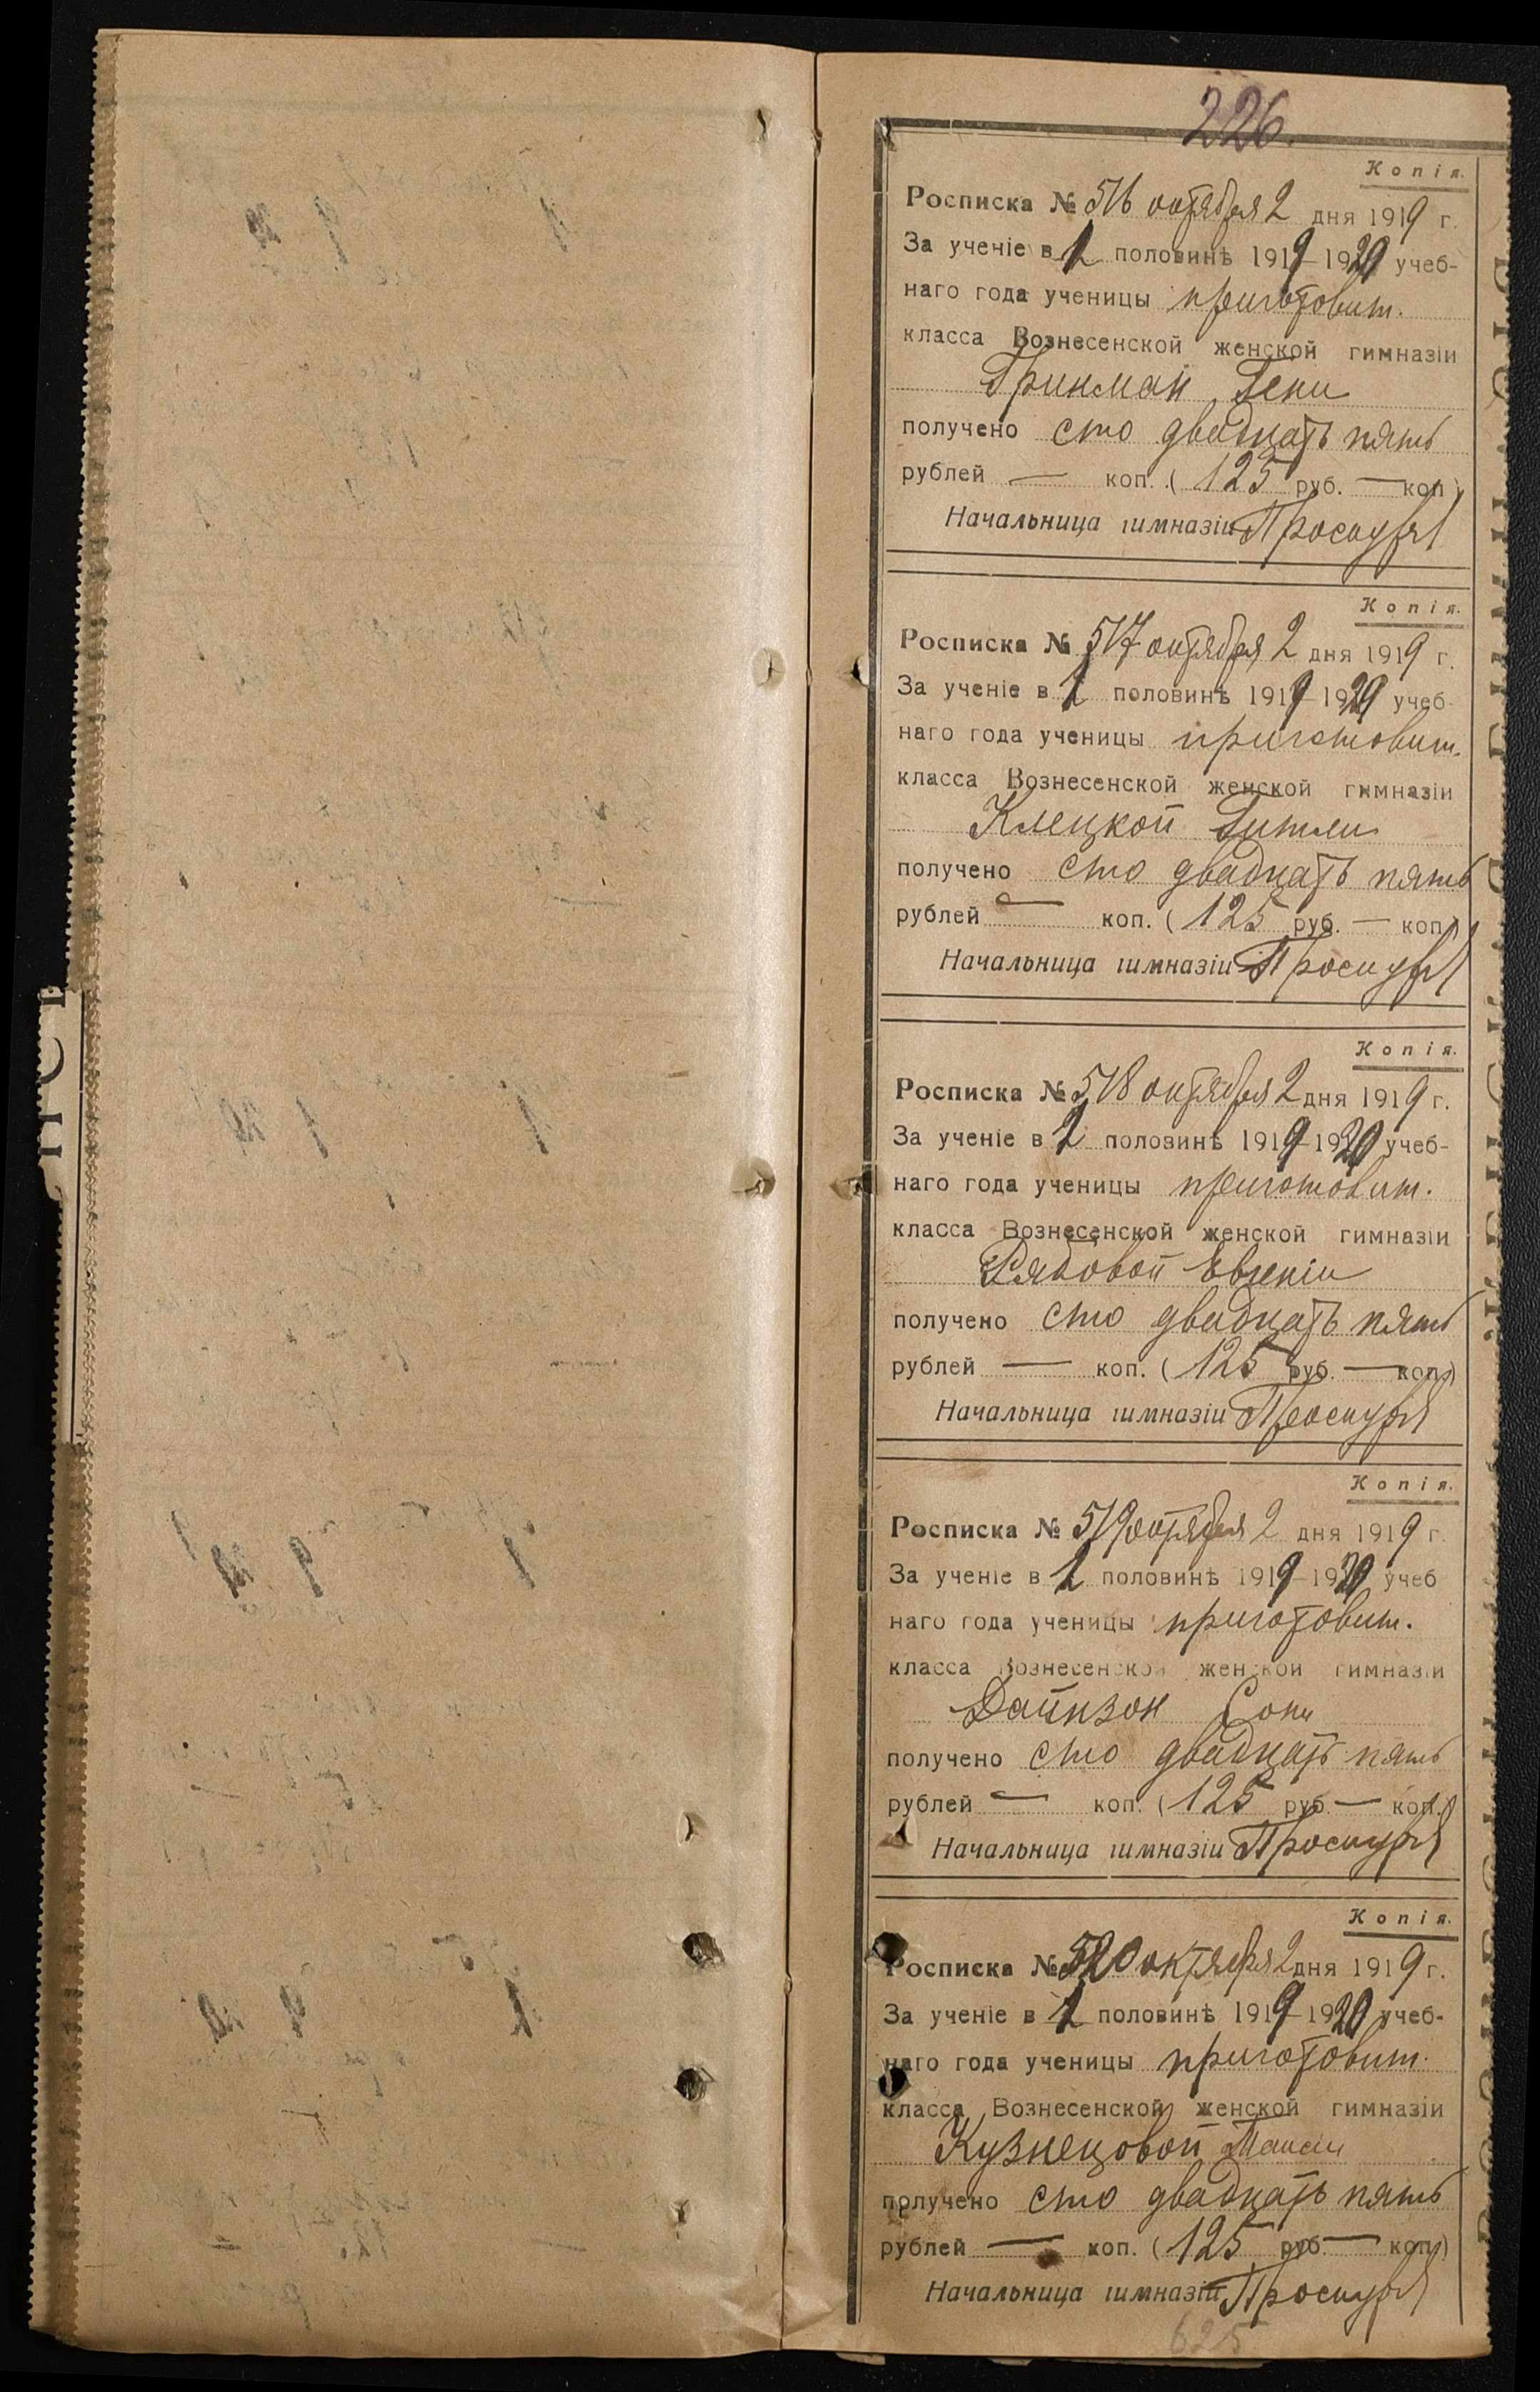 226.
Копія.
Росписка № 516 октября 2 дня 1919 г.
За ученіе в 1 половинѣ 1919–1920 учеб-
наго года ученицы приготовит.
класса Вознесенской женской гимназіи
Гринман Гени
получено сто двадцать пять
рублей — коп. (125 руб. — коп)
Начальница гимназіи
Копія.
Росписка № 517 октября 2 дня 1919 г.
За ученіе в 1 половинѣ 1919–1920 учеб-
наго года ученицы приготовит.
класса Вознесенской женской гимназіи
Клецкой Гитли
получено сто двадцать пять
рублей — коп. (125 руб. — коп.)
Начальница гимназіи
Копія.
Росписка № 518 октября 2 дня 1919 г.
За ученіе в 1 половинѣ 1919–1920 учеб-
наго года ученицы приготовит.
класса Вознесенской женской гимназіи
Рядовой Евгеніи
получено сто двадцать пять
рублей — коп. (125 руб. — коп.)
Начальница гимназіи
Копія.
Росписка № 519 октября 2 дня 1919 г.
За ученіе в 1 половинѣ 1919–1920 учеб
наго года ученицы приготовит.
класса Вознесенской женской гимназіи
Дайнзон Сони
получено сто двадцать пять
рублей — коп. (125 руб. — коп.)
Начальница гимназіи
Копія.
Росписка № 520 октября 2 дня 1919 г.
За ученіе в 1 половинѣ 1919–1920 учеб-
наго года ученицы приготовит.
класса Вознесенской женской гимназіи
Кузнецовой Таисіи
получено сто двадцать пять
рублей — коп. (125 руб. — коп.)
Начальница гимназіи
625